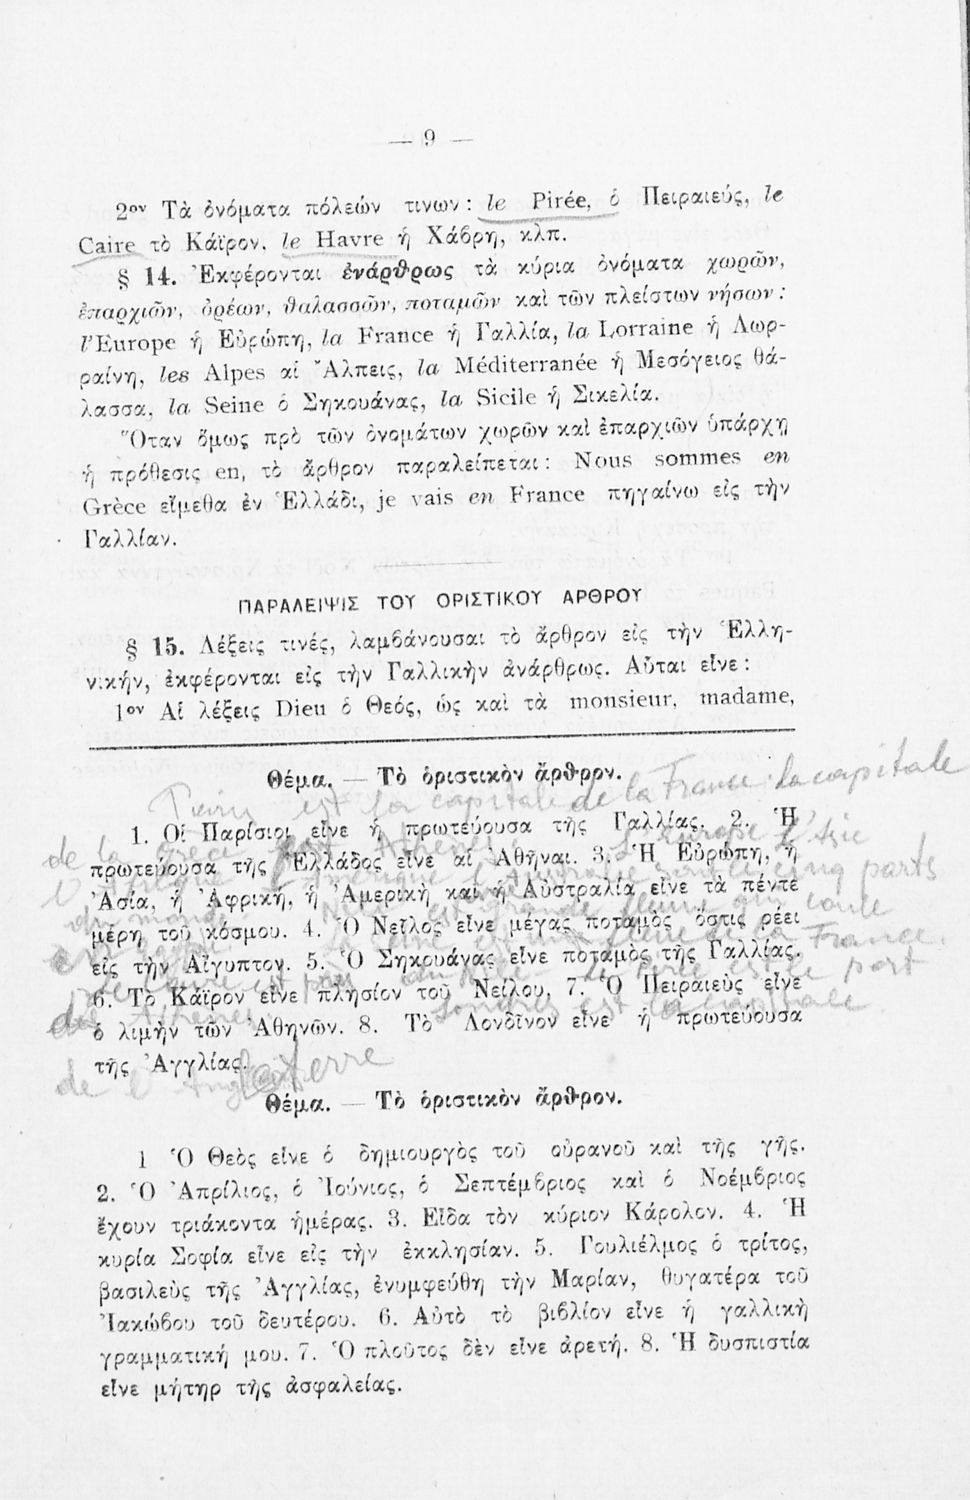 — 9 —
2ον Τὰ ὀνόματα πόλεών τινων : le Pirée, ὁ Πειραιεύς, le
Caire τὸ Κάϊρον, le Havre ἡ Χάβρη, κλπ.
§ 14. Ἐκφέρονται ἐνάρθρως τὰ κύρια ὀνόματα χωρῶν,
ἐπαρχιῶν, ὀρέων, θαλασσῶν, ποταμῶν καὶ τῶν πλείστων νήσων :
l'Europe ἡ Εὐρώπη, la France ἡ Γαλλία, la Lorraine ἡ Λωρ-
ραίνη, les Alpes αἱ Ἄλπεις, la Méditerranée ἡ Μεσόγειος θά-
λασσα, la Seine ὁ Σηκουάνας, la Sicile ἡ Σικελία.
Ὅταν ὅμως πρὸ τῶν ὀνομάτων χωρῶν καὶ ἐπαρχιῶν ὑπάρχῃ
ἡ πρόθεσις en, τὸ ἄρθρον παραλείπεται : Nous sommes en
Grèce εἴμεθα ἐν Ἑλλάδι, je vais en France πηγαίνω εἰς τὴν
Γαλλίαν.
ΠΑΡΑΛΕΙΨΙΣ ΤΟΥ ΟΡΙΣΤΙΚΟΥ ΑΡΘΡΟΥ
§ 15. Λέξεις τινές, λαμβάνουσαι τὸ ἄρθρον εἰς τὴν Ἑλλη-
νικήν, ἐκφέρονται εἰς τὴν Γαλλικὴν ἀνάρθρως. Αὗται εἶνε :
1ον Αἱ λέξεις Dieu ὁ Θεός, ὡς καὶ τὰ monsieur, madame,
Θέμα. — Τὸ ὁριστικὸν ἄρθρον.
est la capitale de la France la capitale
1. Οἱ Παρίσιοι εἶνε ἡ πρωτεύουσα τῆς Γαλλίας. 2. Ἡ
de la Grèce est Athènes L'Europe l'Asie
πρωτεύουσα τῆς Ἑλλάδος εἶνε αἱ Ἀθῆναι. 3. Ἡ Εὐρώπη, ἡ
cinq parts
Ἀσία, ἡ Ἀφρική, ἡ Ἀμερικὴ καὶ ἡ Αὐστραλία εἶνε τὰ πέντε
du monde fleuve qui coule
μέρη τοῦ κόσμου. 4. Ὁ Νεῖλος εἶνε μέγας ποταμὸς ὅστις ρέει
la Seine est de la France.
εἰς τὴν Αἴγυπτον. 5. Ὁ Σηκουάνας εἶνε ποταμὸς τῆς Γαλλίας.
est le port
6. Τὸ Κάϊρον εἶνε πλησίον τοῦ Νείλου. 7. Ὁ Πειραιεὺς εἶνε
Londres est la capitale
ὁ λιμὴν τῶν Ἀθηνῶν. 8. Τὸ Λονδῖνον εἶνε ἡ πρωτεύουσα
τῆς Ἀγγλίας.
de l'Angleterre
Θέμα. — Τὸ ὁριστικὸν ἄρθρον.
1 Ὁ Θεὸς εἶνε ὁ δημιουργὸς τοῦ οὐρανοῦ καὶ τῆς γῆς.
2. Ὁ Ἀπρίλιος, ὁ Ἰούνιος, ὁ Σεπτέμβριος καὶ ὁ Νοέμβριος
ἔχουν τριάκοντα ἡμέρας. 3. Εἶδα τὸν κύριον Κάρολον. 4. Ἡ
κυρία Σοφία εἶνε εἰς τὴν ἐκκλησίαν. 5. Γουλιέλμος ὁ τρίτος,
βασιλεὺς τῆς Ἀγγλίας, ἐνυμφεύθη τὴν Μαρίαν, θυγατέρα τοῦ
Ἰακώβου τοῦ δευτέρου. 6. Αὐτὸ τὸ βιβλίον εἶνε ἡ γαλλικὴ
γραμματική μου. 7. Ὁ πλοῦτος δὲν εἶνε ἀρετή. 8. Ἡ δυσπιστία
εἶνε μήτηρ τῆς ἀσφαλείας.